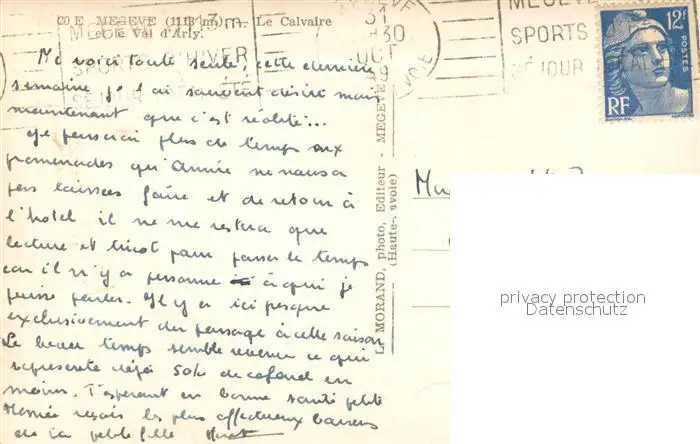 20 E MEGEVE (1113 m) — Le Calvaire
et le Val d'Arly.
MEGEVE
SPORTS D'HIVER
SÉJOUR
31
OCT
MEGEVE
SPORTS
SÉJOUR
12F
POSTES
RF
Me voici toute seule, cette dernière
semaine je l'ai souvent désiré mais
maintenant que c'est réalité...
Je passerai plus de temps aux
promenades qu'Annie ne nous a
pas laissées faire et de retour à
l'hôtel il ne me restera que
lecture et tricot pour passer le temps
car il n'y a personne à qui je
puisse parler. Il y a ici presque
exclusivement du passage à cette saison
Le beau temps semble revenu ce qui
représente déjà 50% de cafard en
moins. T'espérant en bonne santé petite
reçois les plus affectueux baisers
de ta petite fille
L. MORAND, photo, Editeur - MEGEVE
(Haute-Savoie)
privacy protection
Datenschutz